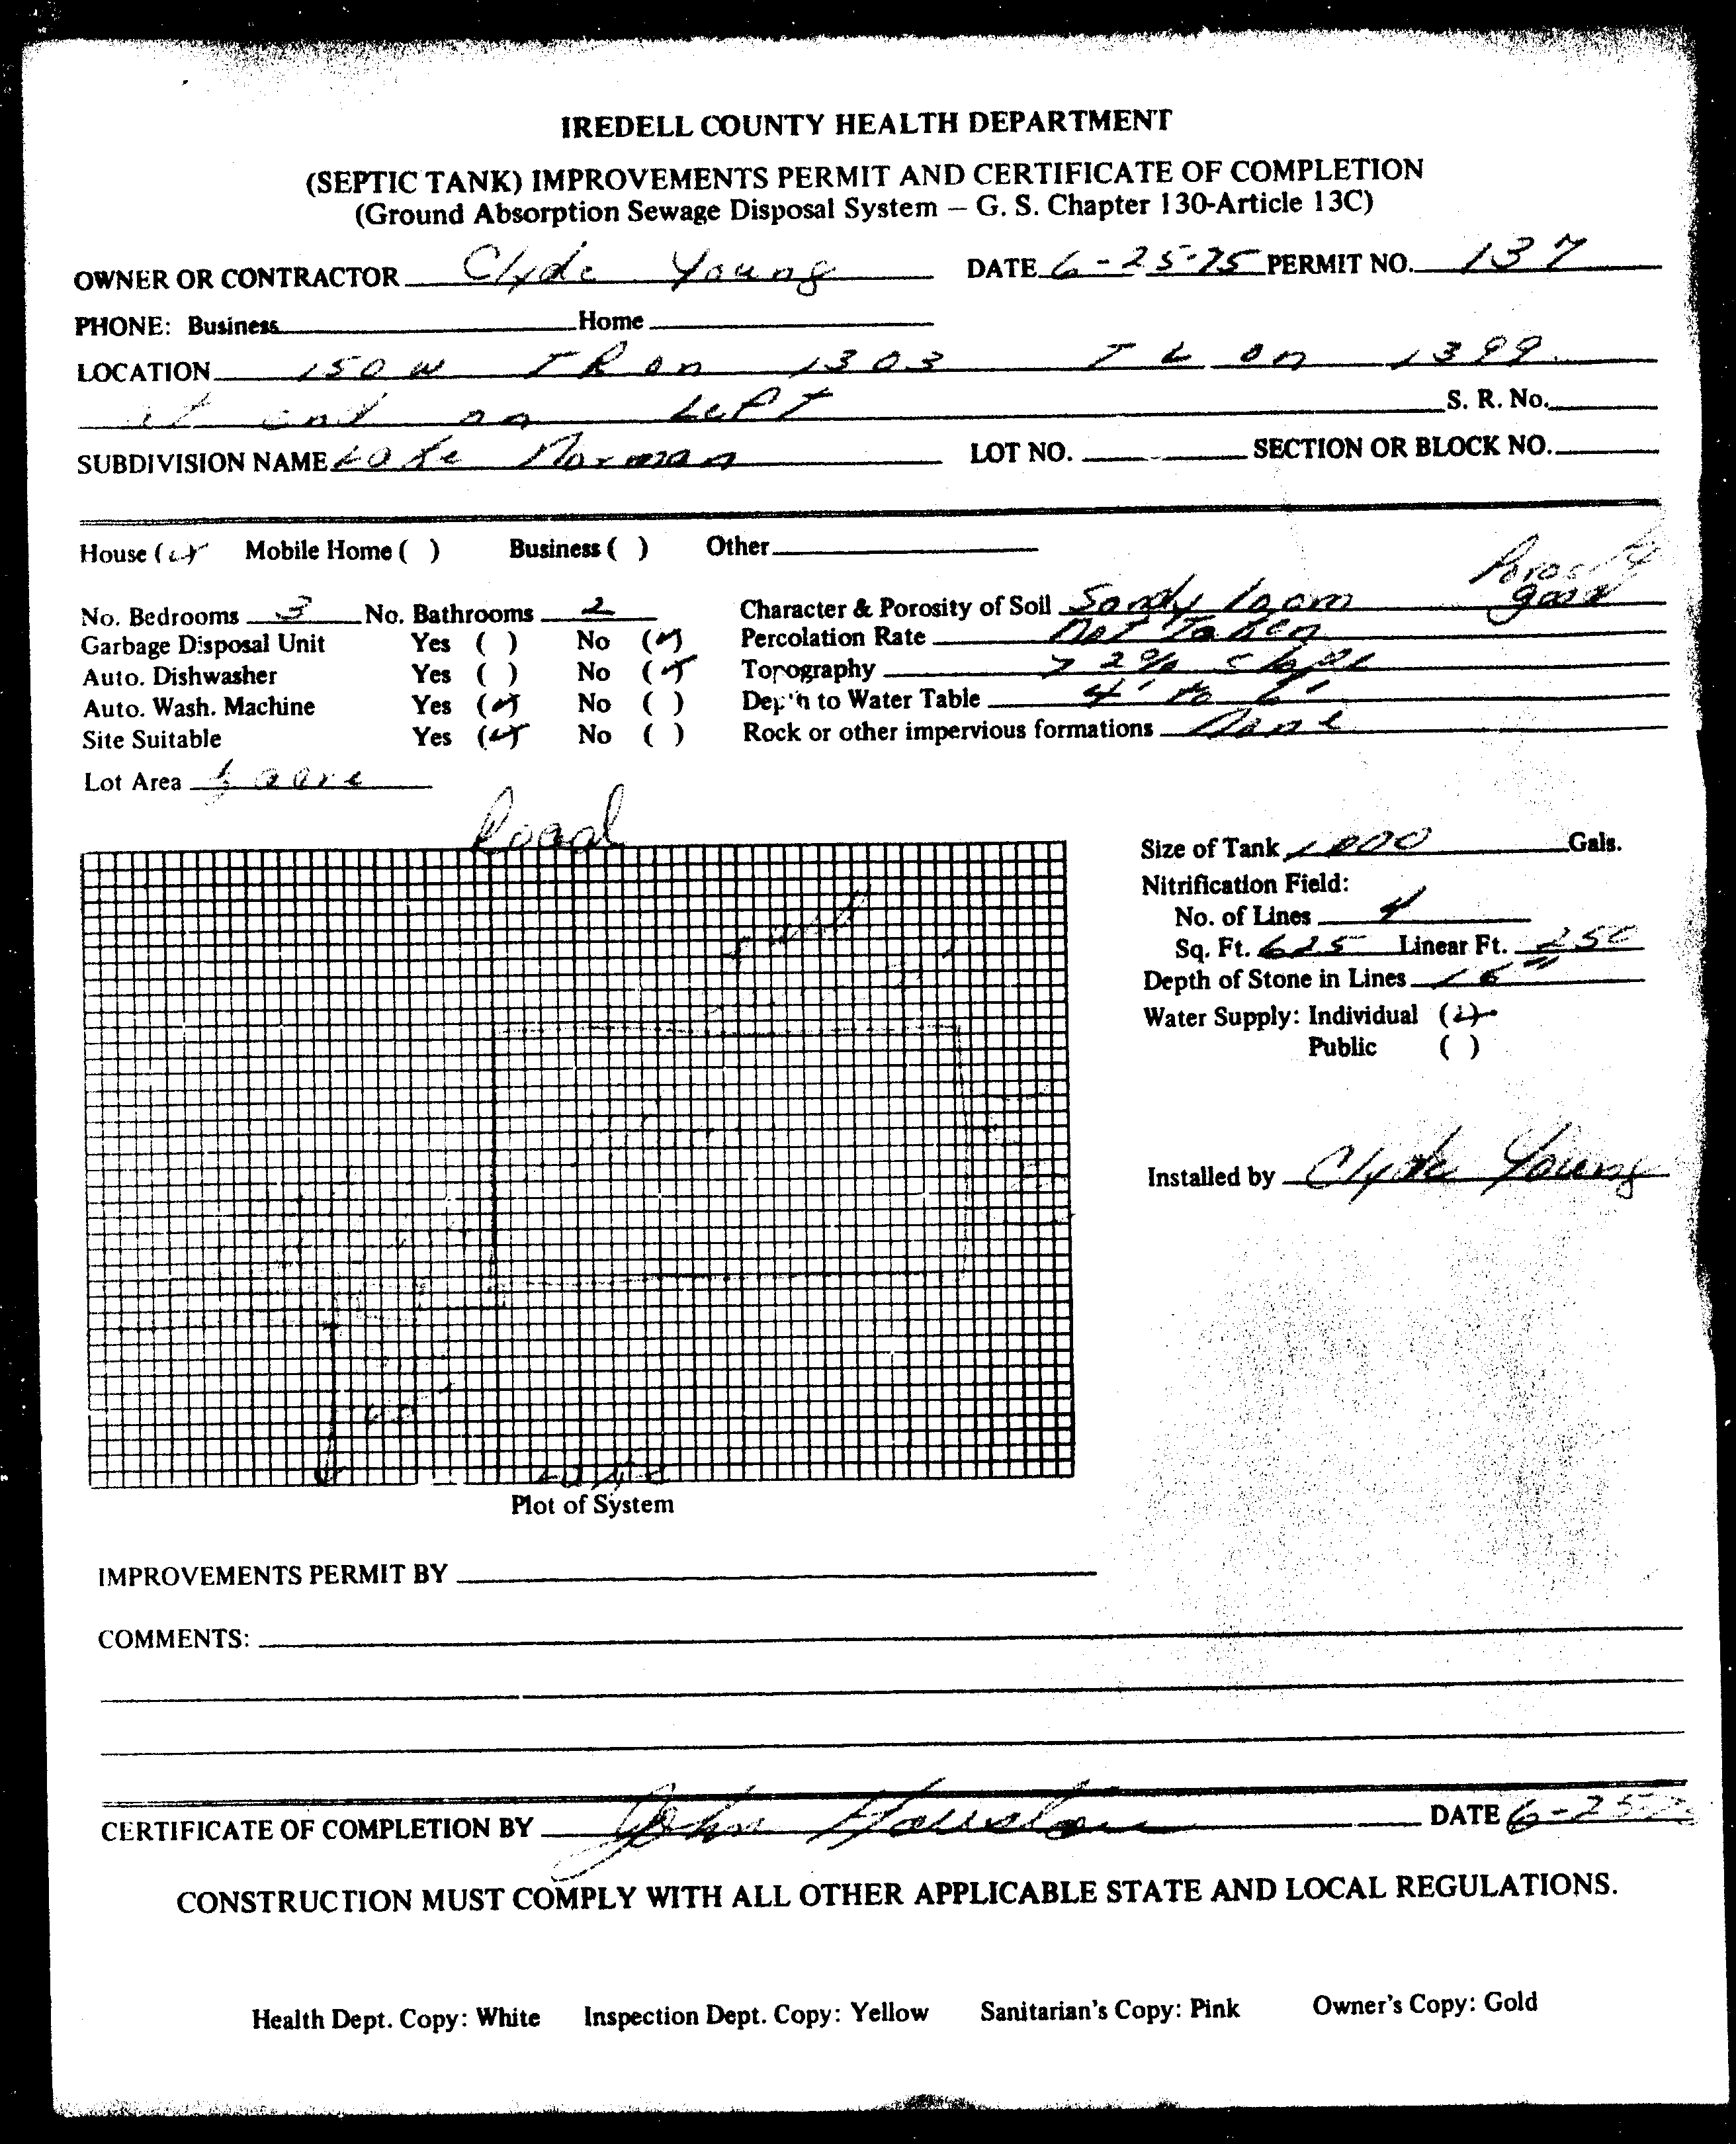 IREDELL COUNTY HEALTH DEPARTMENT
(SEPTIC TANK) IMPROVEMENTS PERMIT AND CERTIFICATE OF COMPLETION
(Ground Absorption Sewage Disposal System – G. S. Chapter 130-Article 13C)
OWNER OR CONTRACTOR Clyde Young DATE 6-25-75 PERMIT NO. 137
PHONE: Business Home
LOCATION 150 W TR on 1303 TL on 1399
at end on LePT S. R. No.
SUBDIVISION NAME Lake Norman LOT NO. SECTION OR BLOCK NO.
House (✓) Mobile Home ( ) Business ( ) Other
Porosity
No. Bedrooms 3 No. Bathrooms 2 Character & Porosity of Soil Sandy loam good
Garbage Disposal Unit Yes ( ) No (✓) Percolation Rate not Taken
Auto. Dishwasher Yes ( ) No (✓) Topography > 2% slope
Auto. Wash. Machine Yes (✓) No ( ) Depth to Water Table 4' to 6'
Site Suitable Yes (✓) No ( ) Rock or other impervious formations None
Lot Area acre
Road
Size of Tank 1000 Gals.
Nitrification Field:
No. of Lines 4
Sq. Ft. 625 Linear Ft. 250
Depth of Stone in Lines 16"
Water Supply: Individual (✓)
Public ( )
Installed by Clyde Young
Plot of System
IMPROVEMENTS PERMIT BY
COMMENTS:
CERTIFICATE OF COMPLETION BY John DATE 6-25-
CONSTRUCTION MUST COMPLY WITH ALL OTHER APPLICABLE STATE AND LOCAL REGULATIONS.
Health Dept. Copy: White Inspection Dept. Copy: Yellow Sanitarian's Copy: Pink Owner's Copy: Gold